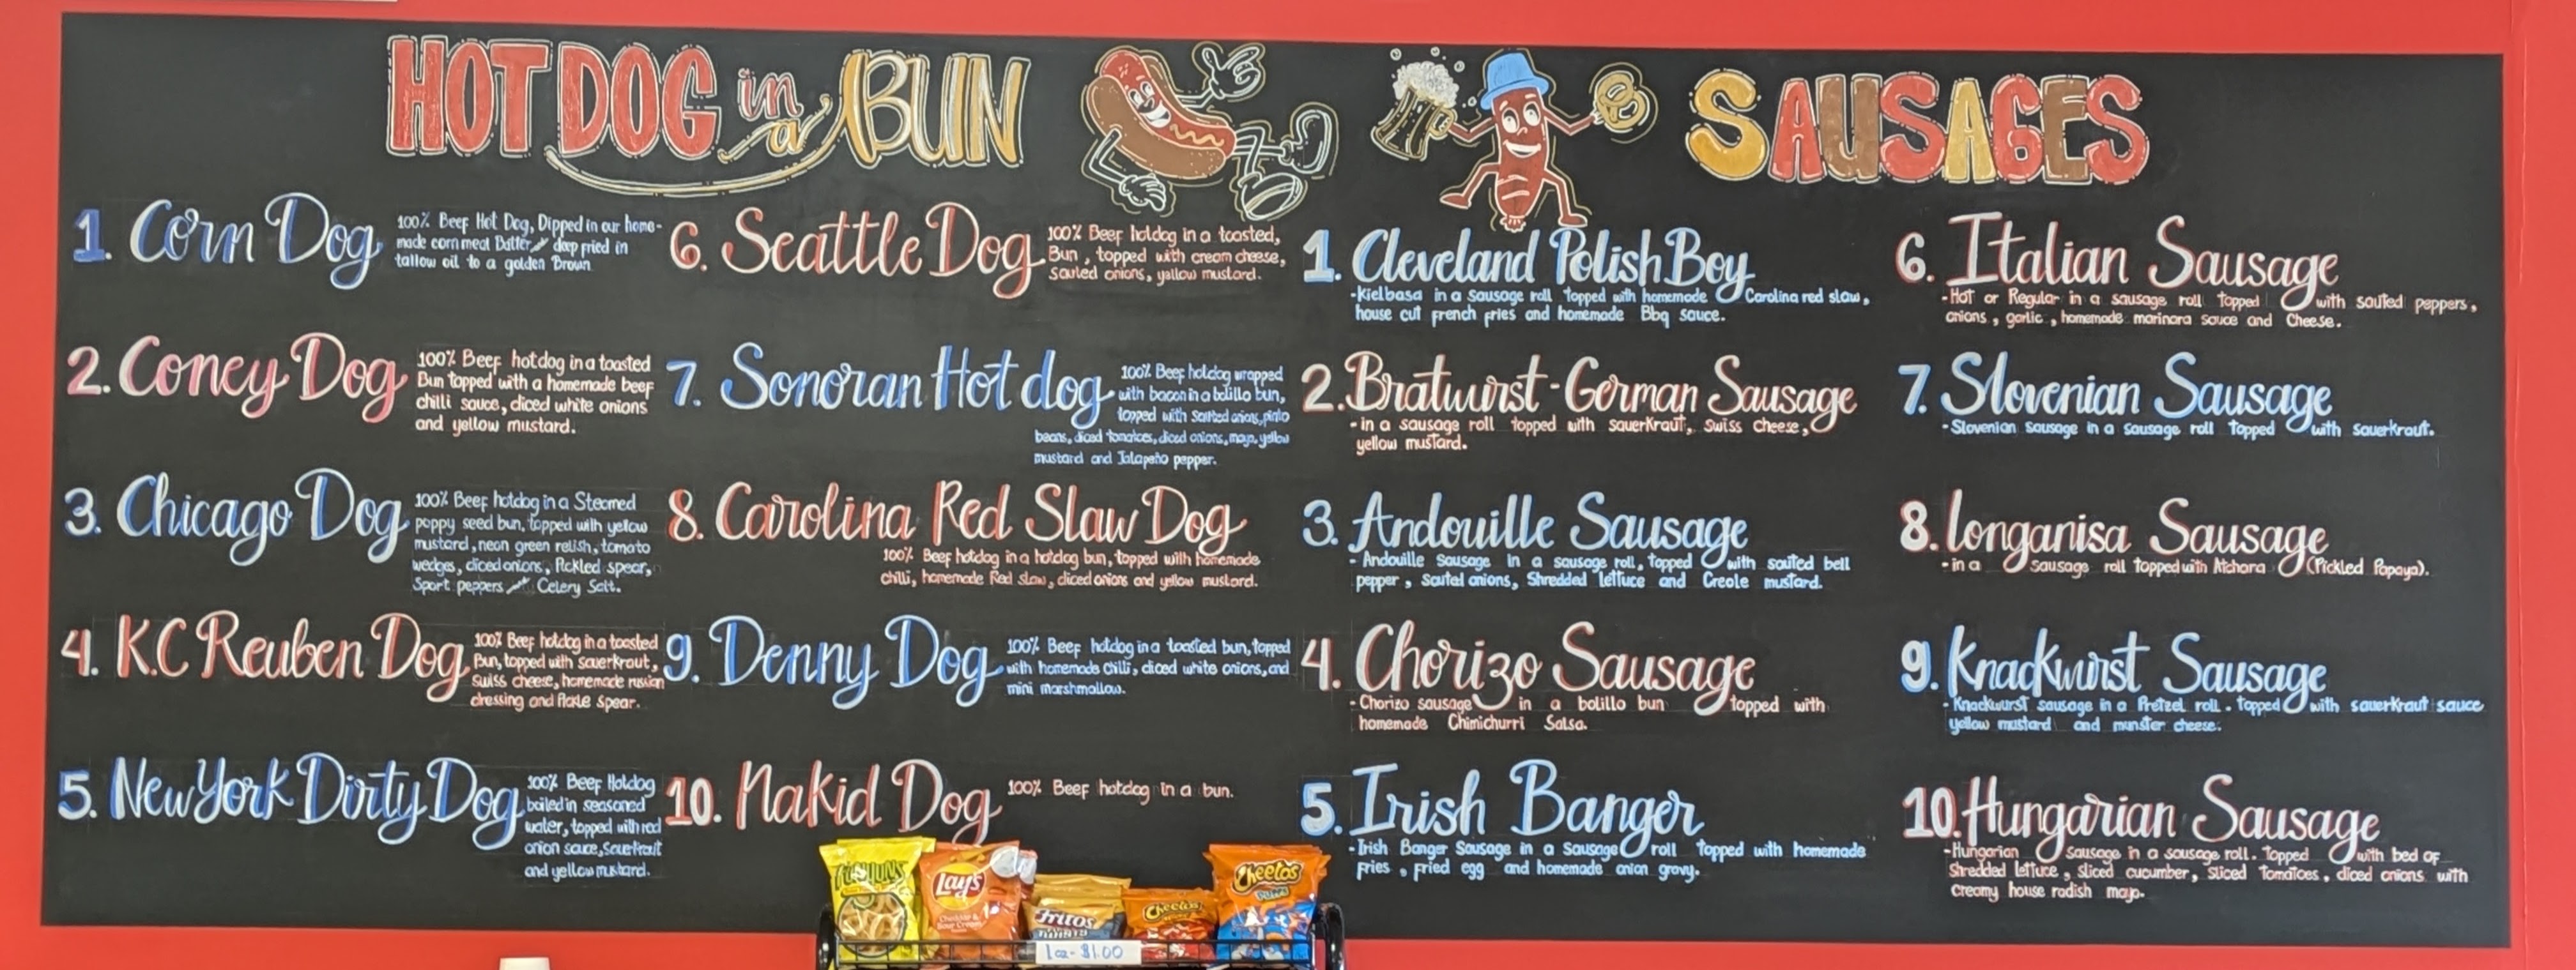 HOT DOG in a BUN
1. Corn Dog
100% Beef Hot Dog, Dipped in our home-
made corn meal Batter deep fried in
tallow oil to a golden Brown
2. Coney Dog
100% Beef hotdog in a toasted
Bun topped with a homemade beef
chilli sauce, diced white onions
and yellow mustard.
3. Chicago Dog
100% Beef hotdog in a Steamed
poppy seed bun, topped with yellow
mustard, neon green relish, tomato
wedges, diced onions, Pickled spear,
Sport peppers Celery Salt.
4. K.C Reuben Dog
100% Beef hotdog in a toasted
Bun, topped with sauerkraut,
Swiss cheese, homemade russian
dressing and Pickle spear.
5. New York Dirty Dog
100% Beef Hotdog
boiled in seasoned
water, topped with red
onion sauce, Sauerkraut
and yellow mustard.
6. Seattle Dog
100% Beef hotdog in a toasted,
Bun, topped with cream cheese,
sauted onions, yellow mustard.
7. Sonoran Hot dog
100% Beef hotdog wrapped
with bacon in a bolillo bun,
topped with sauted onions, pinto
beans, diced tomatoes, diced onions, mayo, yellow
mustard and Jalapeño pepper.
8. Carolina Red Slaw Dog
100% Beef hotdog in a hotdog bun, topped with homemade
chilli, homemade Red slaw, diced onions and yellow mustard.
9. Denny Dog
100% Beef hotdog in a toasted bun, topped
with homemade Chilli, diced white onions, and
mini marshmallow.
10. Nakid Dog
100% Beef hotdog in a bun.
SAUSAGES
1. Cleveland Polish Boy
-Kielbasa in a Sausage roll topped with homemade Carolina red slaw,
house cut french fries and homemade Bbq sauce.
2. Bratwurst-German Sausage
-in a sausage roll topped with sauerkraut, swiss cheese,
yellow mustard.
3. Andouille Sausage
- Andouille Sausage in a sausage roll, topped with sauted bell
pepper, sauted onions, Shredded lettuce and Creole mustard.
4. Chorizo Sausage
- Chorizo sausage in a bolillo bun topped with
homemade Chimichurri Salsa.
5. Irish Banger
-Irish Banger Sausage in a Sausage roll topped with homemade
fries, fried egg and homemade onion gravy.
6. Italian Sausage
-Hot or Regular in a sausage roll topped with sauted peppers,
onions, garlic, homemade marinara sauce and Cheese.
7. Slovenian Sausage
-Slovenian sausage in a sausage roll topped with sauerkraut.
8. Longanisa Sausage
-in a sausage roll topped with Atchara (Pickled Papaya).
9. Knackwurst Sausage
- Knackwurst sausage in a Pretzel roll. topped with sauerkraut sauce
yellow mustard and munster cheese.
10. Hungarian Sausage
-Hungarian Sausage in a sausage roll. topped with bed of
Shredded lettuce, sliced cucumber, sliced tomatoes, diced onions with
creamy house radish mayo.
FUNYUNS
Lay's
Cheddar &
Sour Cream
Fritos
TWISTS
Cheetos
Cheetos
Puffs
1oz - $1.00